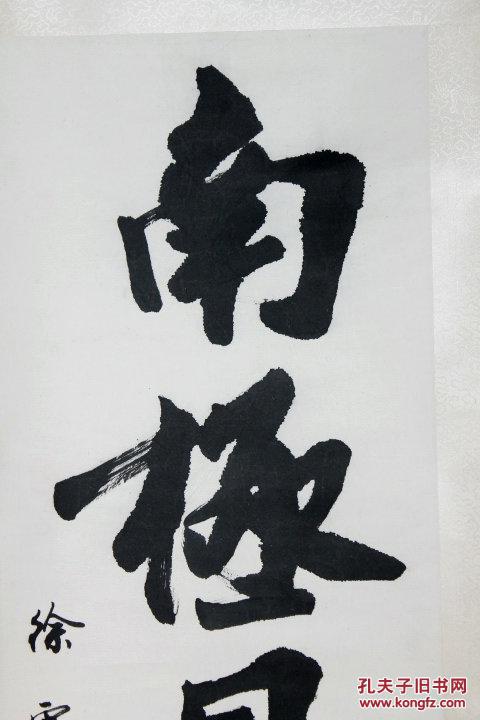 南極
徐
孔夫子旧书网
www.kongfz.com